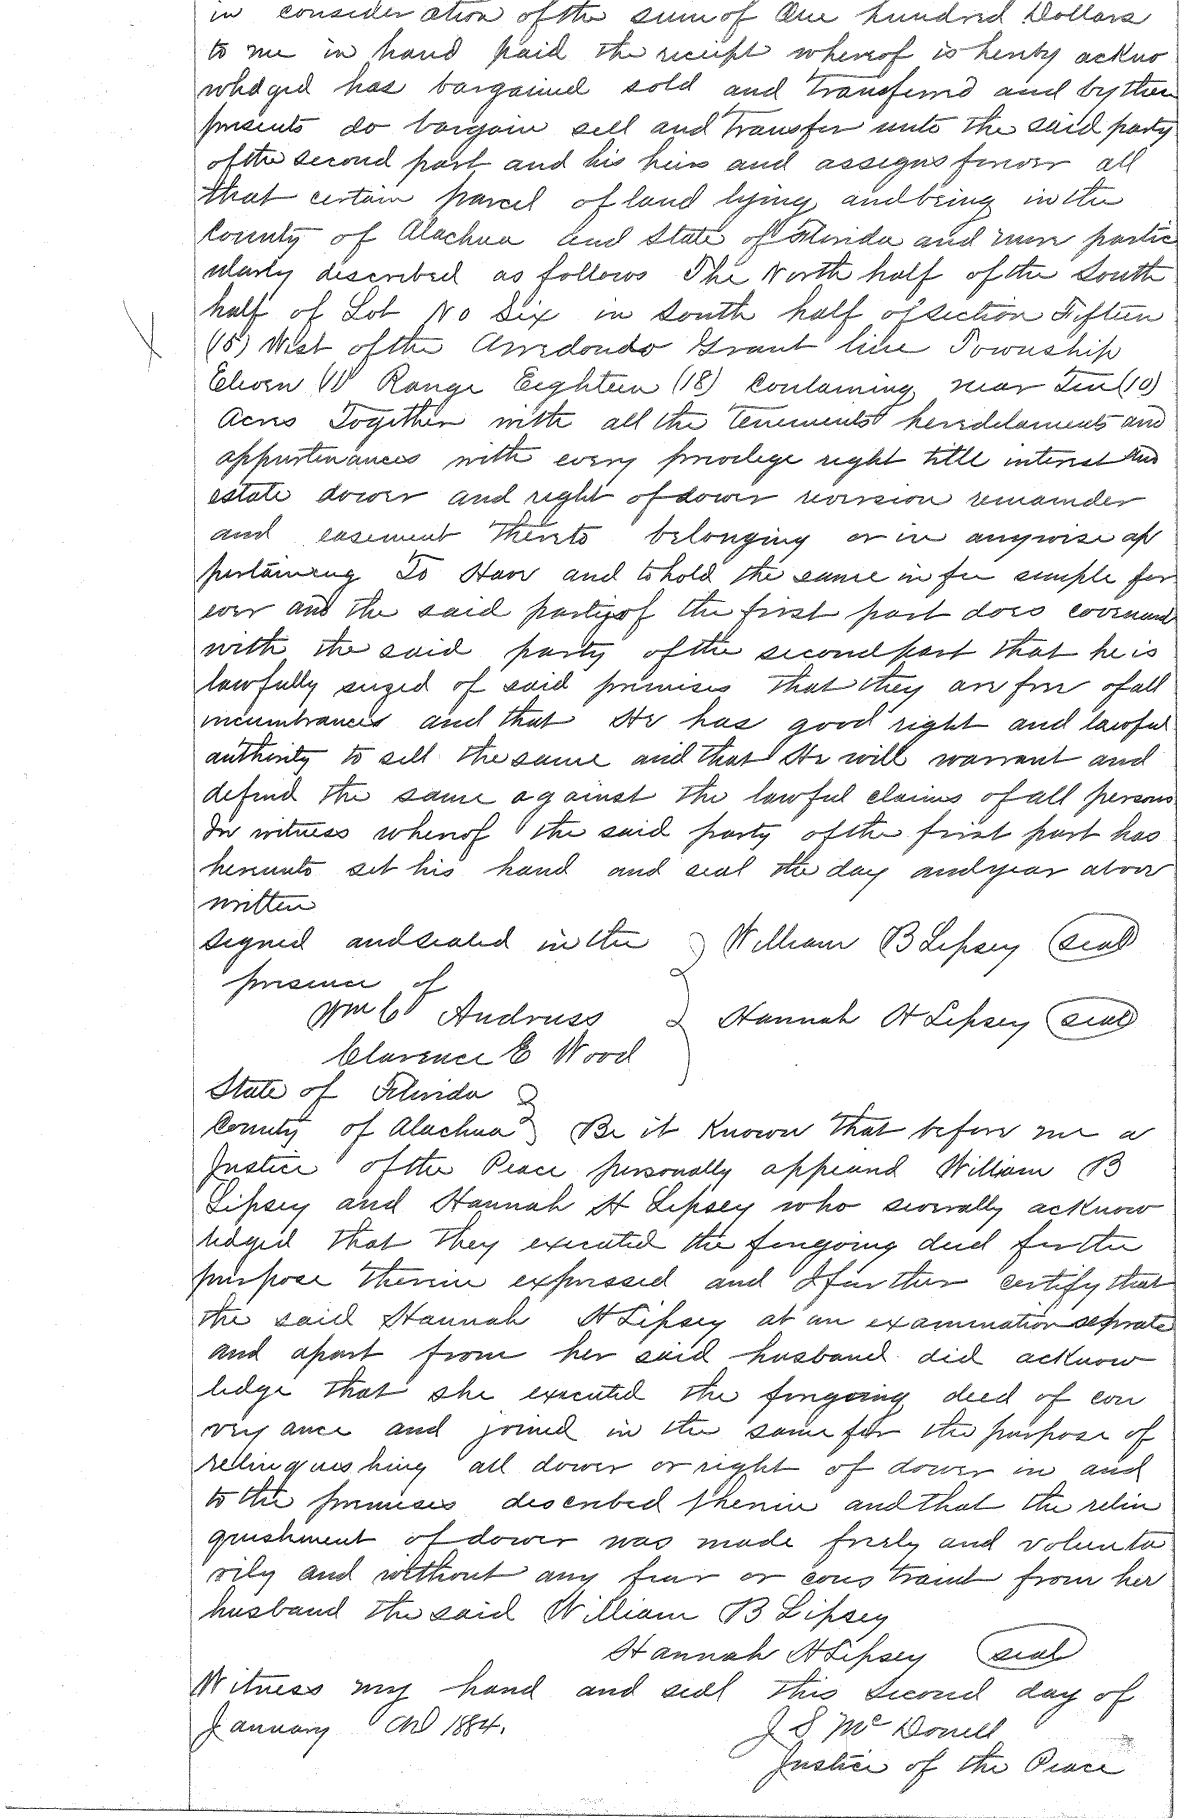 in consideration of the sum of One hundred Dollars
to me in hand paid the receipt whereof is hereby ackno
wledged has bargained sold and transferred and by these
presents do bargain sell and transfer unto the said party
of the second part and his heirs and assigns forever all
that certain parcel of land lying and being in the
County of Alachua and State of Florida and more partic
ularly described as follows The North half of the South
half of Lot No Six in South half of section Fifteen
(15) West of the Arredondo Grant line Township
Eleven (11) Range Eighteen (18) Containing near Ten (10)
Acres Together with all the tenements heredelaments and
appurtenances with every privilege right title interest and
estate dower and right of dower reversion remainder
and easement thereto belonging or in anywise ap
pertaining To Have and to hold the same in fee simple for
ever and the said party of the first part does covenand
with the said party of the second part that he is
lawfully seized of said premises that they are free of all
incumbrances and that He has good right and lawful
authority to sell the same and that He will warrant and
defend the same against the lawful claims of all persons
In witness whereof the said party of the first part has
hereunto set his hand and seal the day and year above
written
Signed and sealed in the William B Lipsey seal
presence of
Wm C Andruss Hannah H Lipsey seal
Clarence E Wood
State of Florida
County of Alachua Be it Known that before me a
Justice of the Peace personally appeared William B
Lipsey and Hannah H Lipsey who severally acknow
ledged that they executed the foregoing deed for the
purpose therein expressed and I further certify that
the said Hannah H Lipsey at an examination seprate
and apart from her said husband did acknow
ledge that she executed the foregoing deed of con
vey ance and joined in the same for the purpose of
relinquishing all dower or right of dower in and
to the premises described therein and that the relin
quishment of dower was made freely and volunta
rily and without any fear or constraint from her
husband the said William B Lipsey
Hannah H Lipsey seal
Witness my hand and seal this Second day of
January AD 1884.
J S McDonell
Justice of the Peace